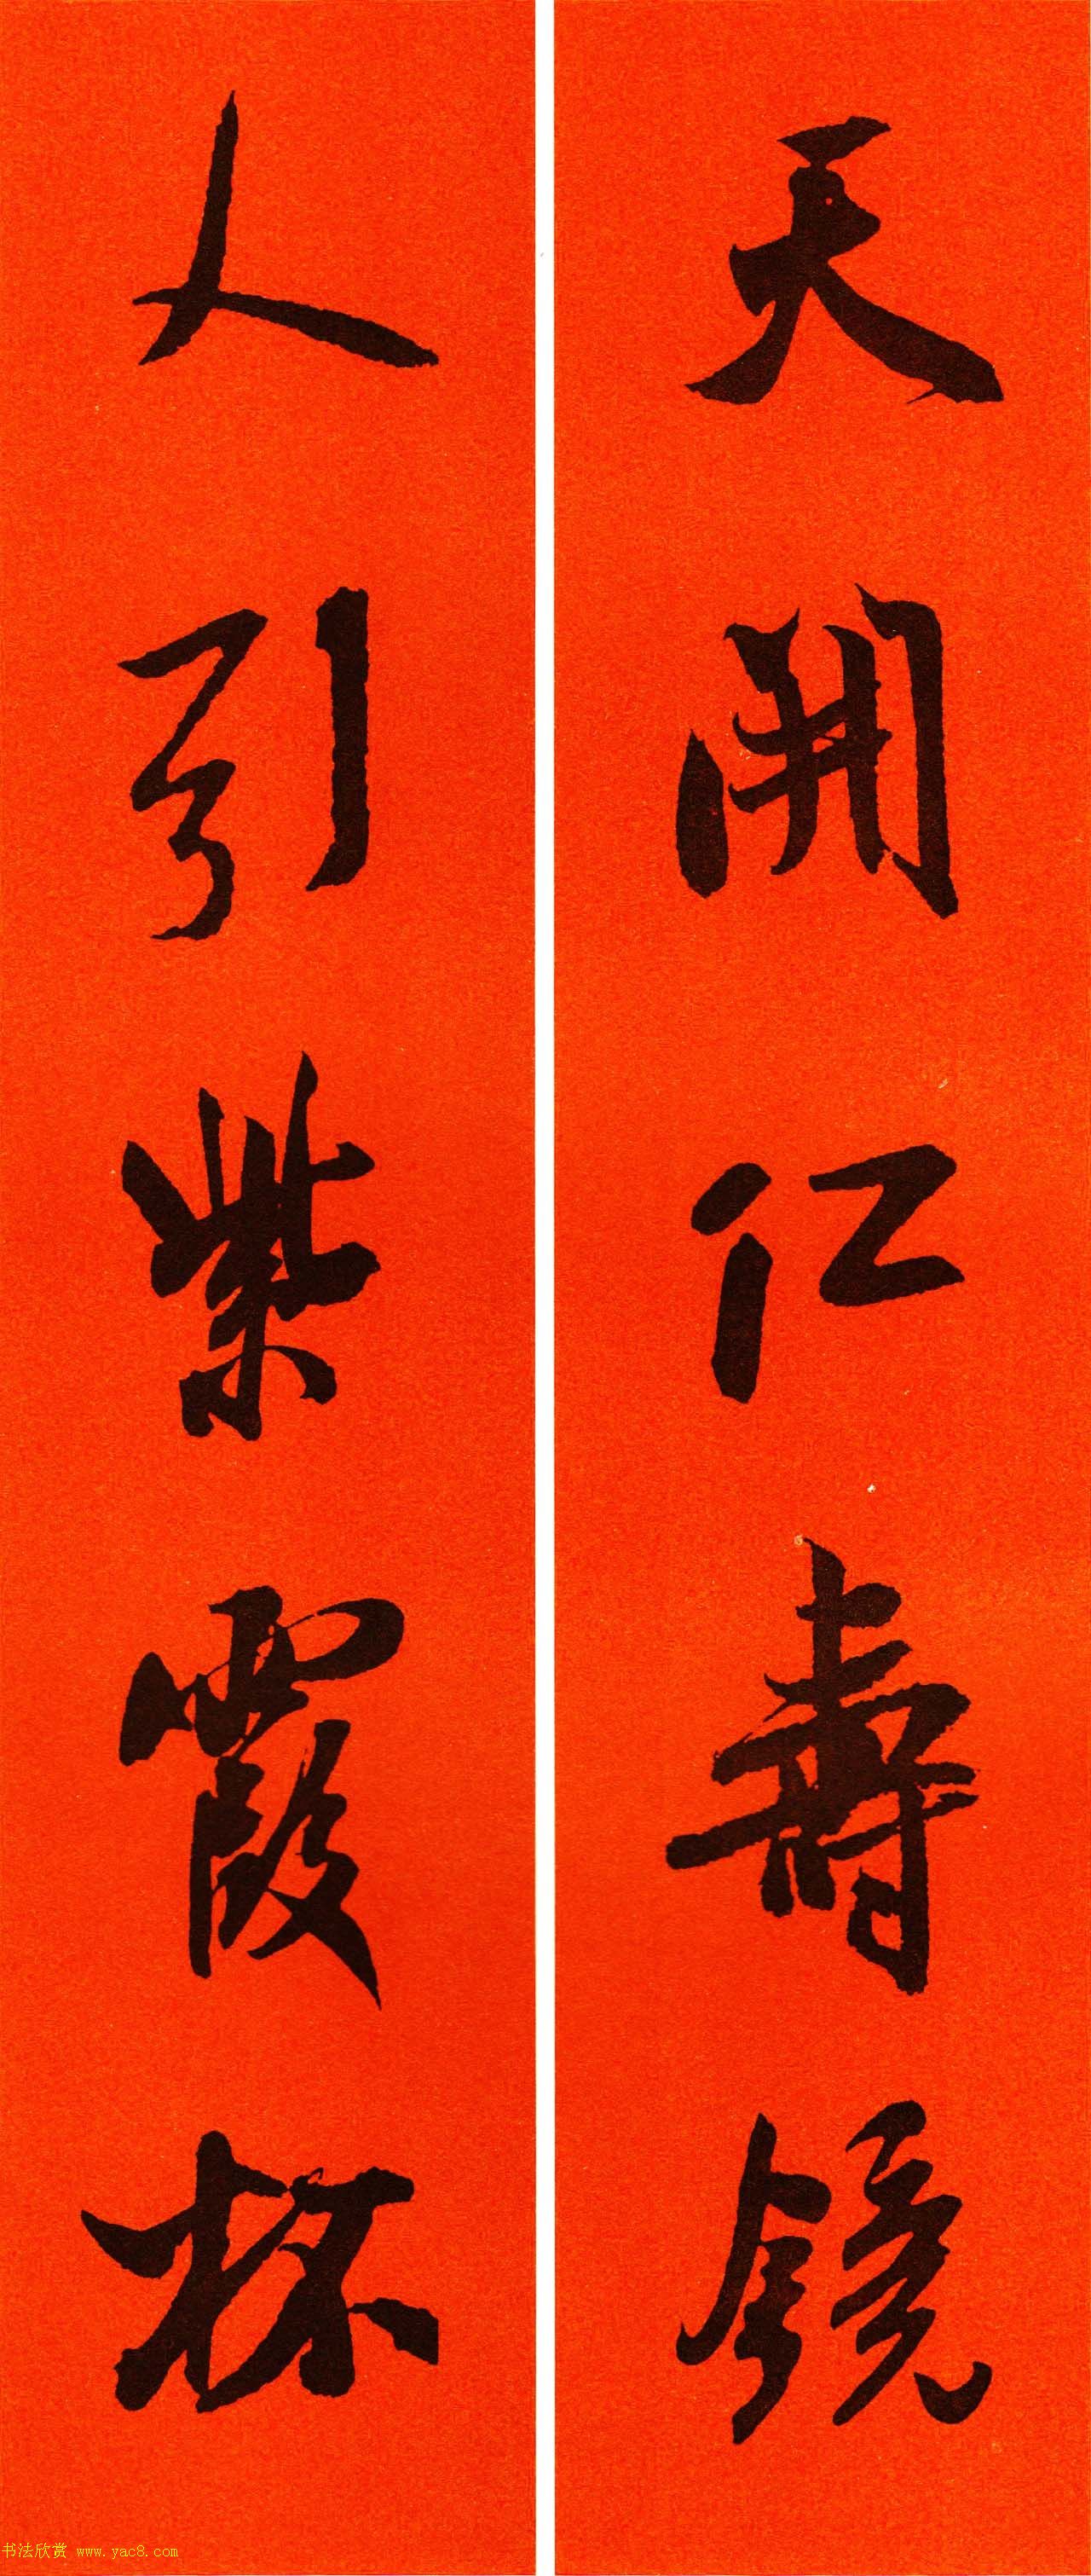 天開仁壽鏡
人引紫霞杯
书法欣赏 www.yac8.com